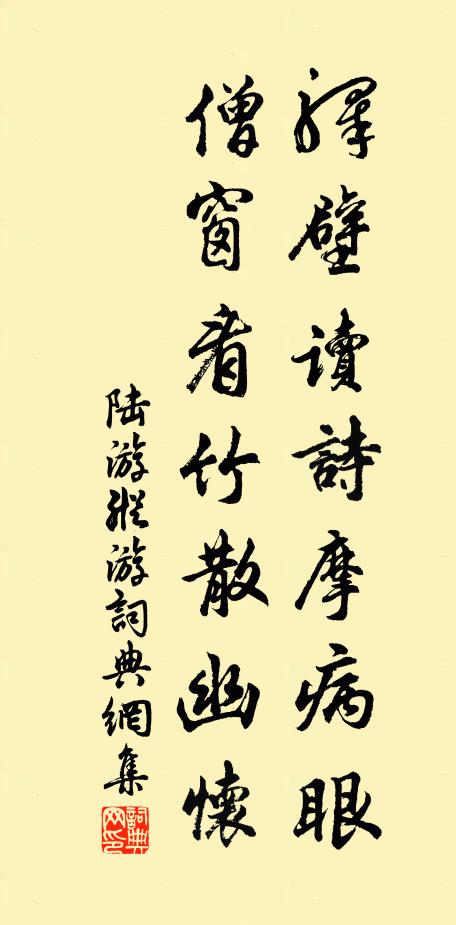 驛壁讀詩摩病眼
僧窗看竹散幽懷
陆游縱游詞典網集
詞典網印